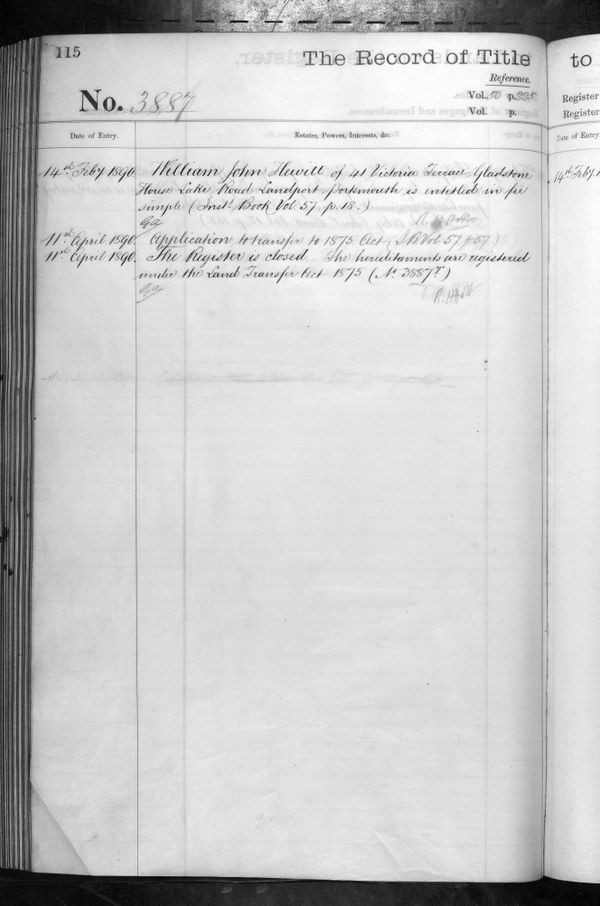 115
The Record of Title
Reference.
No. 3887
Vol. 50 p. 225
Vol. p.
Date of Entry.
Estates, Powers, Interests, &c.
14th Feby 1890. William John Hewitt of 41 Victoria Terrace Gladstone
House Lake Road Landport Portsmouth is entitled in fee
simple (Inst. Book Vol 57. p. 18.)
11th April 1890. Application to transfer to 1875 Act (I.B. Vol 57 p 57)
11th April 1890. The Register is closed The hereditaments are registered
under the Land Transfer Act 1875 (No. 3887T)
to
Register
Register
Date of Entry.
14th Feby 1